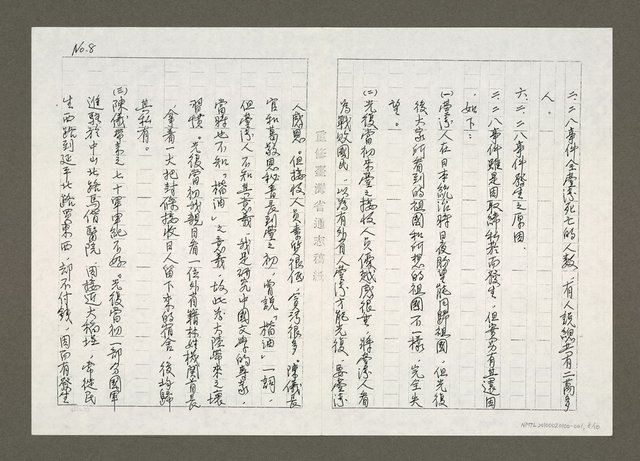 No.8
二、二八事件全臺湾死亡的人数，有人說總共有二萬多
人。
六、二、二八事件發生之原因。
二、二八事件雖是因取締私菸而發生，但事实有其遠因
如下：
(一)臺湾人在日本統治時日夜盼望能回歸祖國，但光復
後大家所看到的祖國和所想的祖國不一樣，完全失
望。
(二)光復當初來臺之接收人員優越感很重，將臺湾人看
為戰敗國民，以為有外省人臺湾才能光復，要臺湾
人感恩。但接收人員素質很低，貪污很多。陳儀長
官和葛敬恩秘書長到臺之初，曾說「楷油」一詞，
但臺湾人不知其意義，我是研究中國文學的專家，
當時也不知「楷油」之意義，故此為大陸帶來之壞
習慣。光復當初我親目看一位外省籍林姓機関首長
拿着一大把封條接收日人留下來的宿舍，後均歸
其私有。
(三)陳儀帶來之七十軍軍紀不好。光復當初一部分國軍
進駐於中山北路馬偕醫院，因接近大稻埕，常從民
生西路到延平北路買東西，却不付錢，因而有發生
重修臺灣省通志稿紙
NMTL20100020100-001,